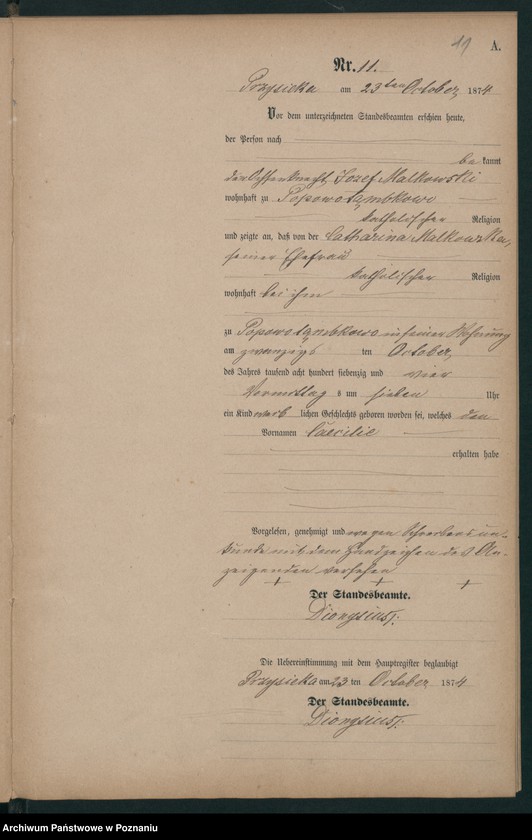 19 A.
Nr. 11.
Przysieka am 23ten October 1874
Vor dem unterzeichneten Standesbeamten erschien heute,
der Person nach
be kannt
der Ochsenknecht Jozef Malkowski
wohnhaft zu Popowotąmbkowo
katholischer Religion
und zeigte an, daß von der Catharina Malkowska,
seiner Ehefrau
katholischer Religion
wohnhaft bei ihm
zu Popowotąmbkowo in seiner Wohnung
am zwanzigs ten October
des Jahrs tausend acht hundert siebenzig und vier
Vormittag s um sieben Uhr
ein Kind weib lichen Geschlechts geboren worden sei, welches den
Vornamen Caecilie
erhalten habe
Vorgelesen, genehmigt und wegen Schreibens un-
kunde mit dem Handzeichen des An-
zeigenden versehen
+ + +
Der Standesbeamte.
Dionysius
Die Uebereinstimmung mit dem Hauptregister beglaubigt
Przysieka am 23 ten October 1874
Der Standesbeamte.
Dionysius
Archiwum Państwowe w Poznaniu